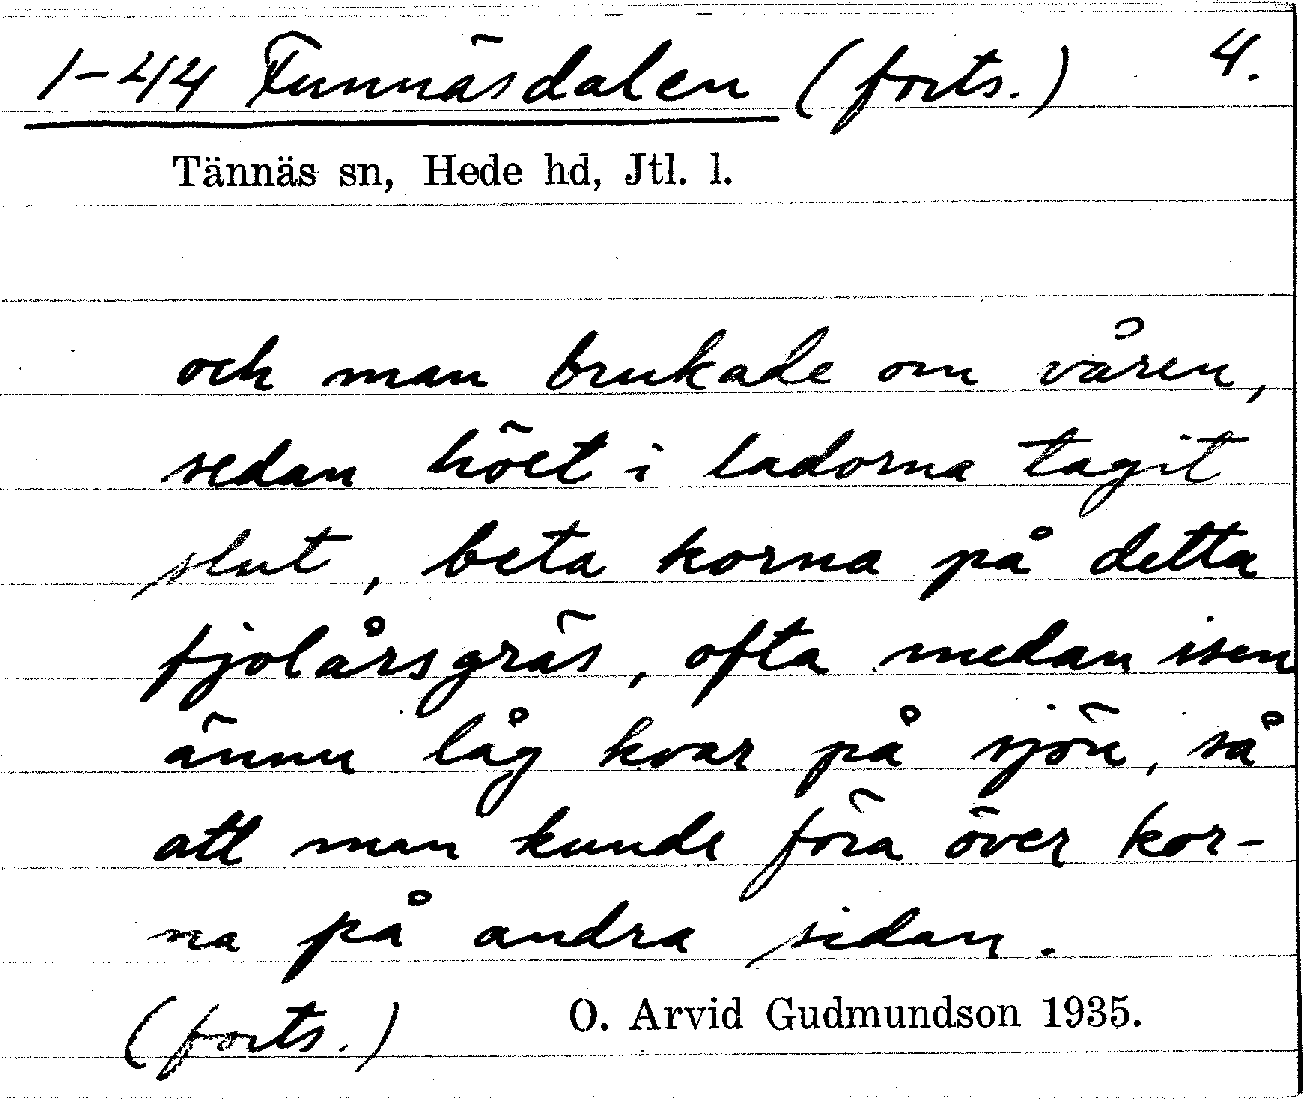 1-44 Funnäsdalen (forts.) 4.
Tännäs sn, Hede hd, Jtl. l.
och man brukade om våren,
sedan höet i ladorna tagit
slut, beta korna på detta
fjolårsgräs, ofta medan isen
ännu låg kvar på sjön, så
att man kunde föra över kor-
na på andra sidan.
(forts.) O. Arvid Gudmundson 1935.